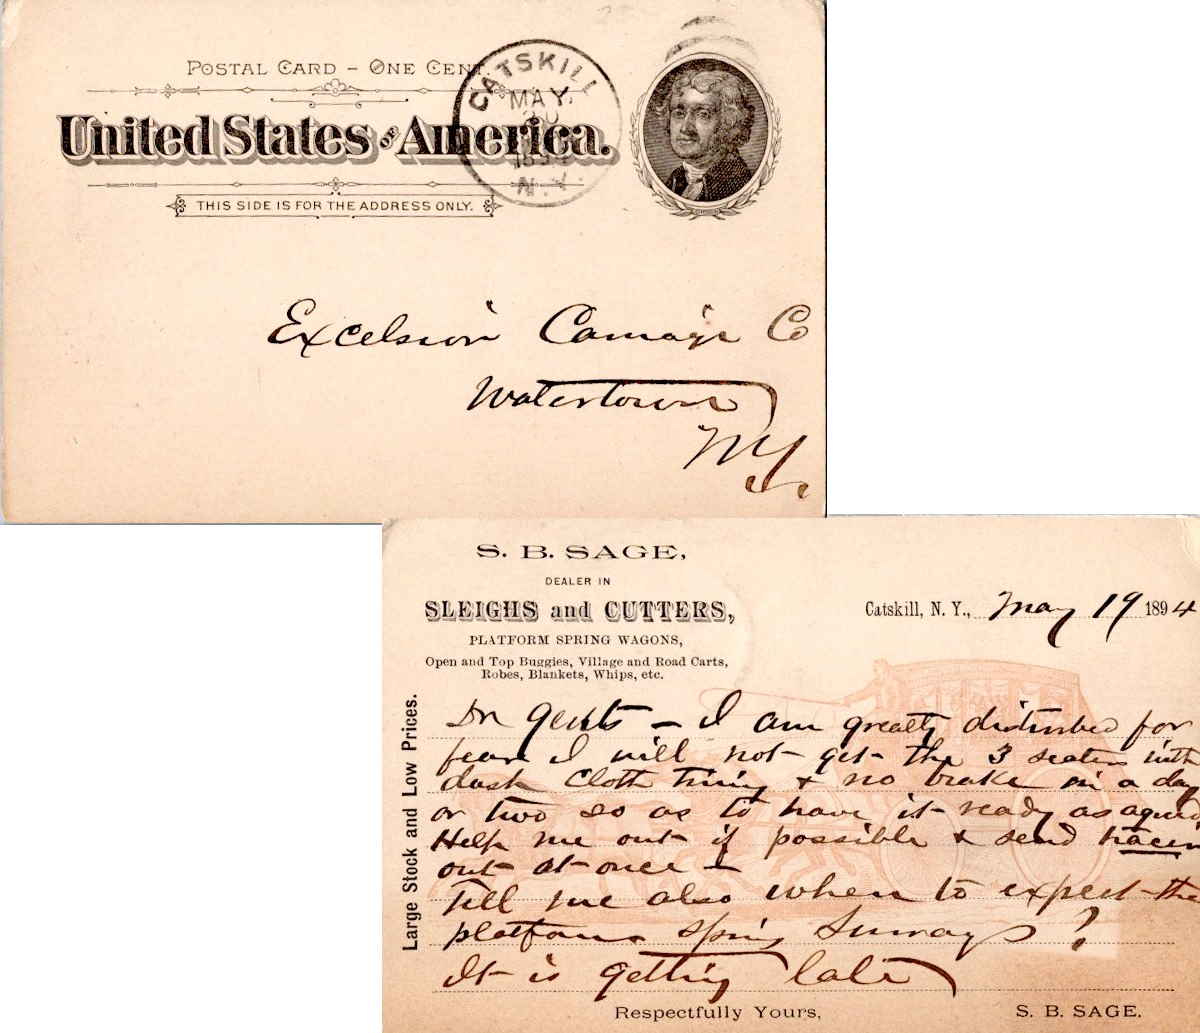 POSTAL CARD – ONE CENT.
United States OF America.
THIS SIDE IS FOR THE ADDRESS ONLY.
CATSKILL
MAY
N.Y.
Excelsior Carriage Co
Watertown
N.Y.
S. B. SAGE,
DEALER IN
SLEIGHS and CUTTERS,
PLATFORM SPRING WAGONS,
Open and Top Buggies, Village and Road Carts,
Robes, Blankets, Whips, etc.
Large Stock and Low Prices.
Catskill, N. Y., May 19 1894
Dr Gents – I am greatly disturbed for
fear I will not get the 3 seater with
dash cloth & no brake in a day
or two so as to have it ready as agreed
Help me out if possible & send tracer
out at once –
Tell me also when to expect the
platform spring Surrays ?
It is getting late
Respectfully Yours,
S. B. SAGE.